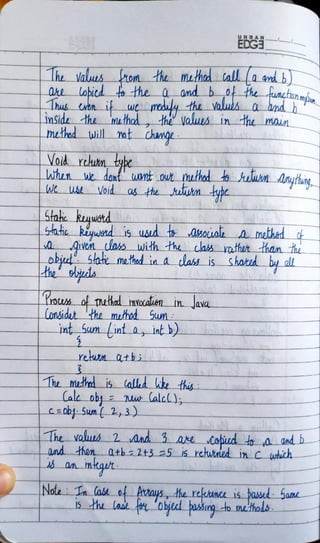 URBAN
EDGE
The values from the method call (a and b)
are copied to the a and b of the function
Thus even if we modify the values a and b
inside the method, the values in the main
method will not change.
Void return type
When we dont want our method to return anything,
we use void as the return type
Static keyword
Static keyword is used to associate a method of
a given class with the class rather than the
object. Static method in a class is shared by all
the objects
Process of method invocation in Java
Consider the method Sum:
int Sum (int a, int b)
{
return a+b;
}
The method is called like this:
Calc obj = new Calc();
c = obj. Sum( 2, 3)
The values 2 and 3 are copied to a and b
and then a+b = 2+3 = 5 is returned in C which
is an integer.
Note: In Case of Arrays, the reference is passed. Same
is the Case for Object passing to methods.